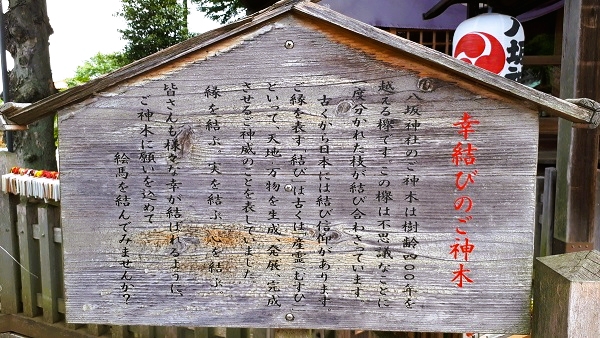 幸結びのご神木
八坂神社のご神木は樹齢四〇〇年を
越える欅です。この欅は不思議なことに
一度分かれた枝が結び合わさっています。
古くから日本には結び信仰があります。
ご縁を表す「結び」は古くは「産霊」むすひ
といって、天地・万物を生成・発展・完成
させるご神威のことを表していました。
縁を結ぶ、実を結ぶ、心を結ぶ、
皆さんも様々な幸が結ばれるように、
ご神木に願いを込めて
絵馬を結んでみませんか?
八坂神